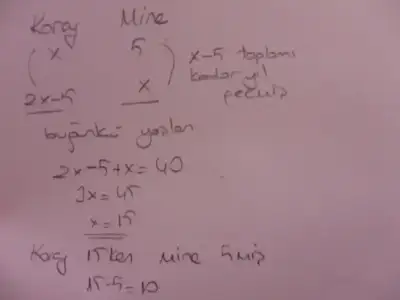 Koray Mine
x 5 x-5 toplamı
x kadar yıl
2x-5 geçmiş
bugünkü yaşları
2x-5+x=40
3x=45
x=15
Koray 15ken Mine 5miş
15-5=10